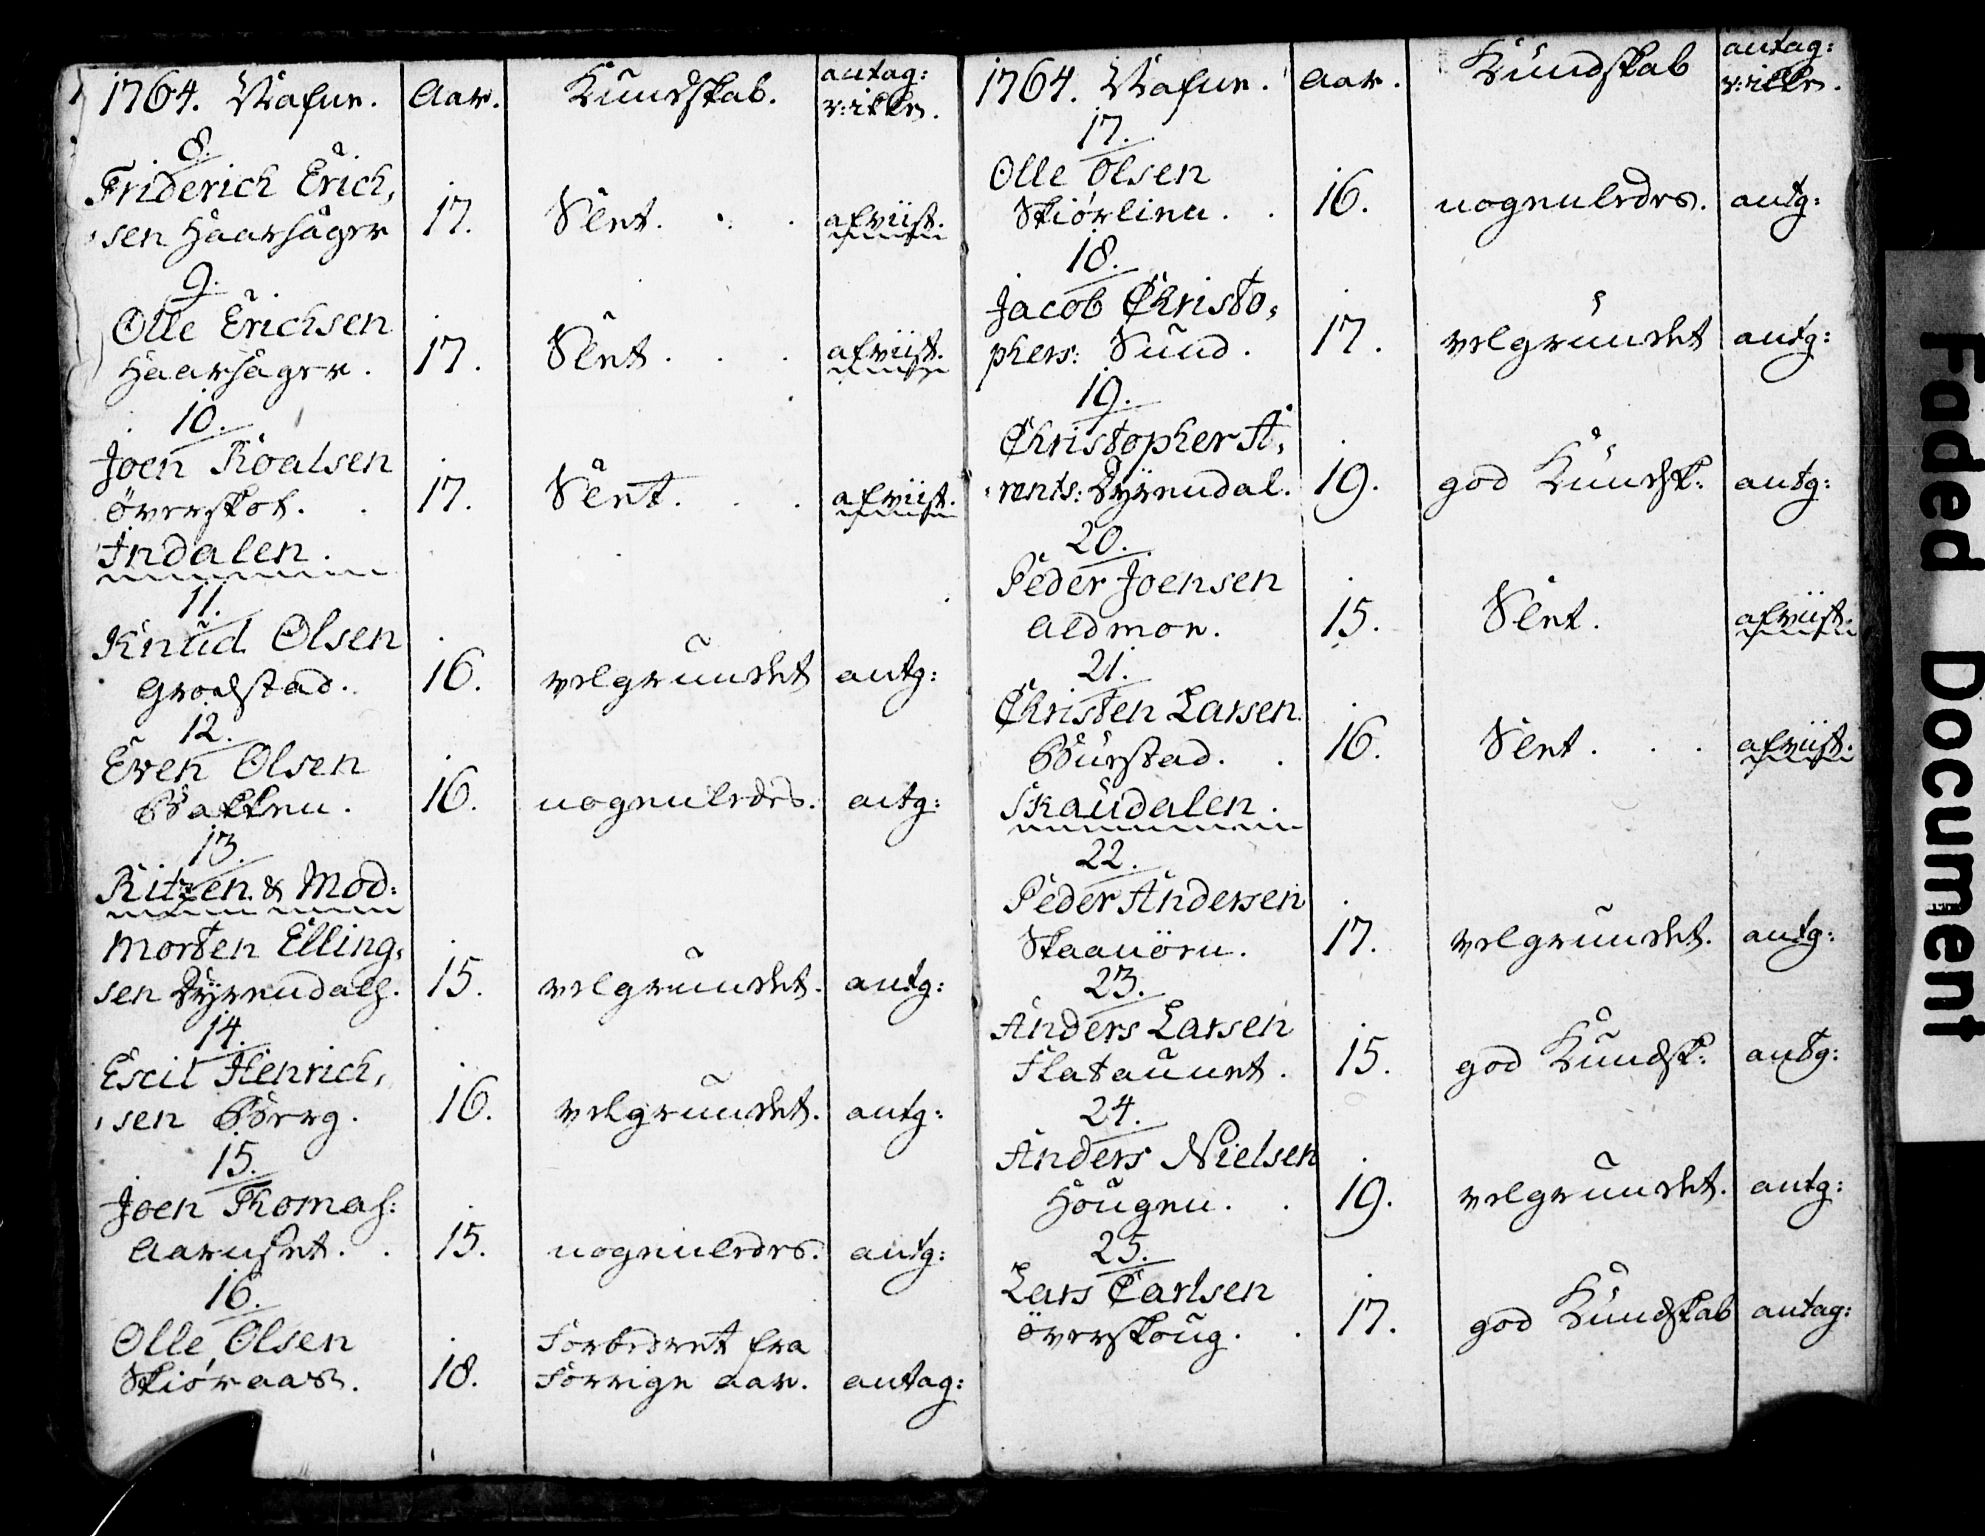 1764. Nafne. Aar. Kundskab. antag: v: ikke.
8.
Friderich Erich,
sen Haarsager 17. Slet. afviist.
9.
Olle Erichsen
Haarsager. 17. Slet. afviist.
10.
Joen Roalsen
Överskot. 17. Slet. afviist.
Indalen.
11.
Knud Olsen
Grodstad. 16. velgrundet antg:
12.
Even Olsen
Bakken. 16. nogenledes. antg:
13.
Ritzen & Mod:
Morten Elling,
sen Dyrendals. 15. velgrundet. antg:
14.
Escil Henrich,
sen Berrg. 16. velgrundet. antg:
15.
Joen Thomas:
Aarnset. 15. nogenledes. antg:
16.
Olle Olsen Forbedret fra
Skiøraas. 18. Forrige aar. antag:
1764. Nafne. Aar. Kundskab antag: v: ikke.
17.
Olle Olsen
Skiørlien. 16. nogenledes. antg:
18.
Jacob Christo,
phers: Sund. 17. velgrundet antg:
19.
Christopher A,
rents: Dyrendal. 19. god Kundsk: antg:
20.
Peder Joensen
Aldmoe. 15. Slet. afviist.
21.
Christen Larsen.
Burstad. 16. Slet. afviist.
Skaudalen.
22.
Peder Andersen
Skaanörn. 17. velgrundet. antg:
23.
Anders Larsen
Flataunet. 15. god Kundsk: antg:
24.
Anders Nielsen
Hougen. 19. velgrundet. antg:
25.
Lars Carlsen
Överskoug. 17. god Kundskab antag:
Faded Document